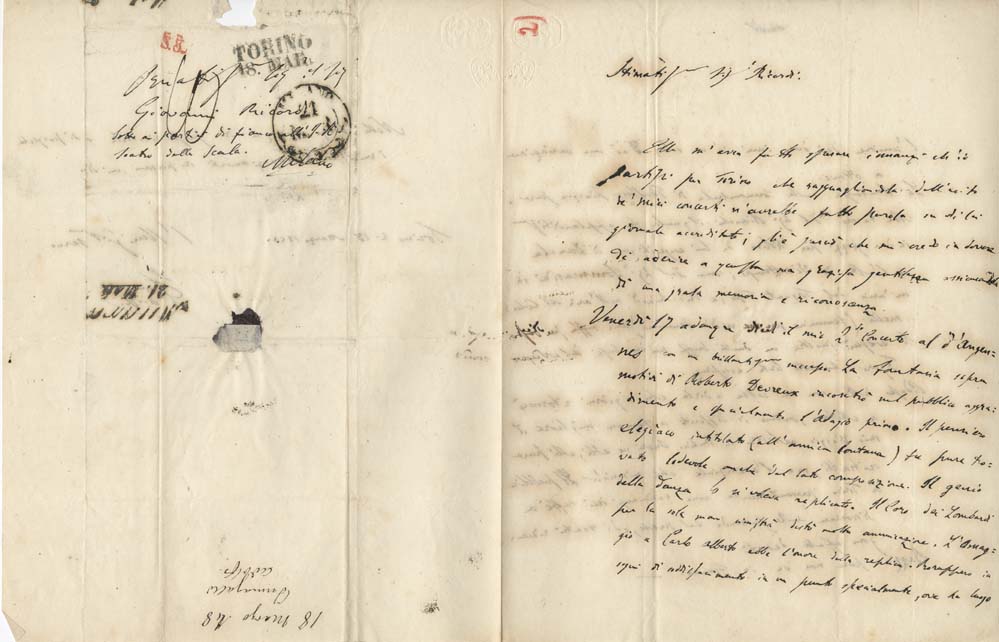 TORINO
18. MAR.
Giovanni Ricordi
sotto ai portici di fianco
teatro della Scala.
Milano
MILANO
21
MILANO
21. MAR
18 Marzo 48
Fumagalli
2
Stimatis. Sig. Ricordi.
Ella m'avea fatto sperare innanzi ch'io
partissi per Torino che ragguagliandola dell'esito
de' miei concerti n'avrebbe fatto parola su di lei
giornale accreditato; gli è perciò che mi credo in dovere
di aderire a questa sua graziosa gentilezza
di una grata memoria e riconoscenza.
Venerdì 17 adunque diedi il mio 2do Concerto al d'Angen=
nes con un brillantis. successo. La fantasia sopra
motivi di Roberto Devreux incontrò nel pubblico aggra=
dimento e specialmente l'Adagio primo. Il pensiero
elegiaco intitolato (all'amica lontana) fu pure tro=
vato lodevole anche dal lato composizione. Il genio
della danza si voleva replicato. Il Coro dei Lombardi
per la sola man sinistra destò molta ammirazione. L'Omag=
gio a Carlo Alberto ebbe l'onore della replica. Proruppero in
segni di soddisfacimento in un punto specialmente, ove ha luogo